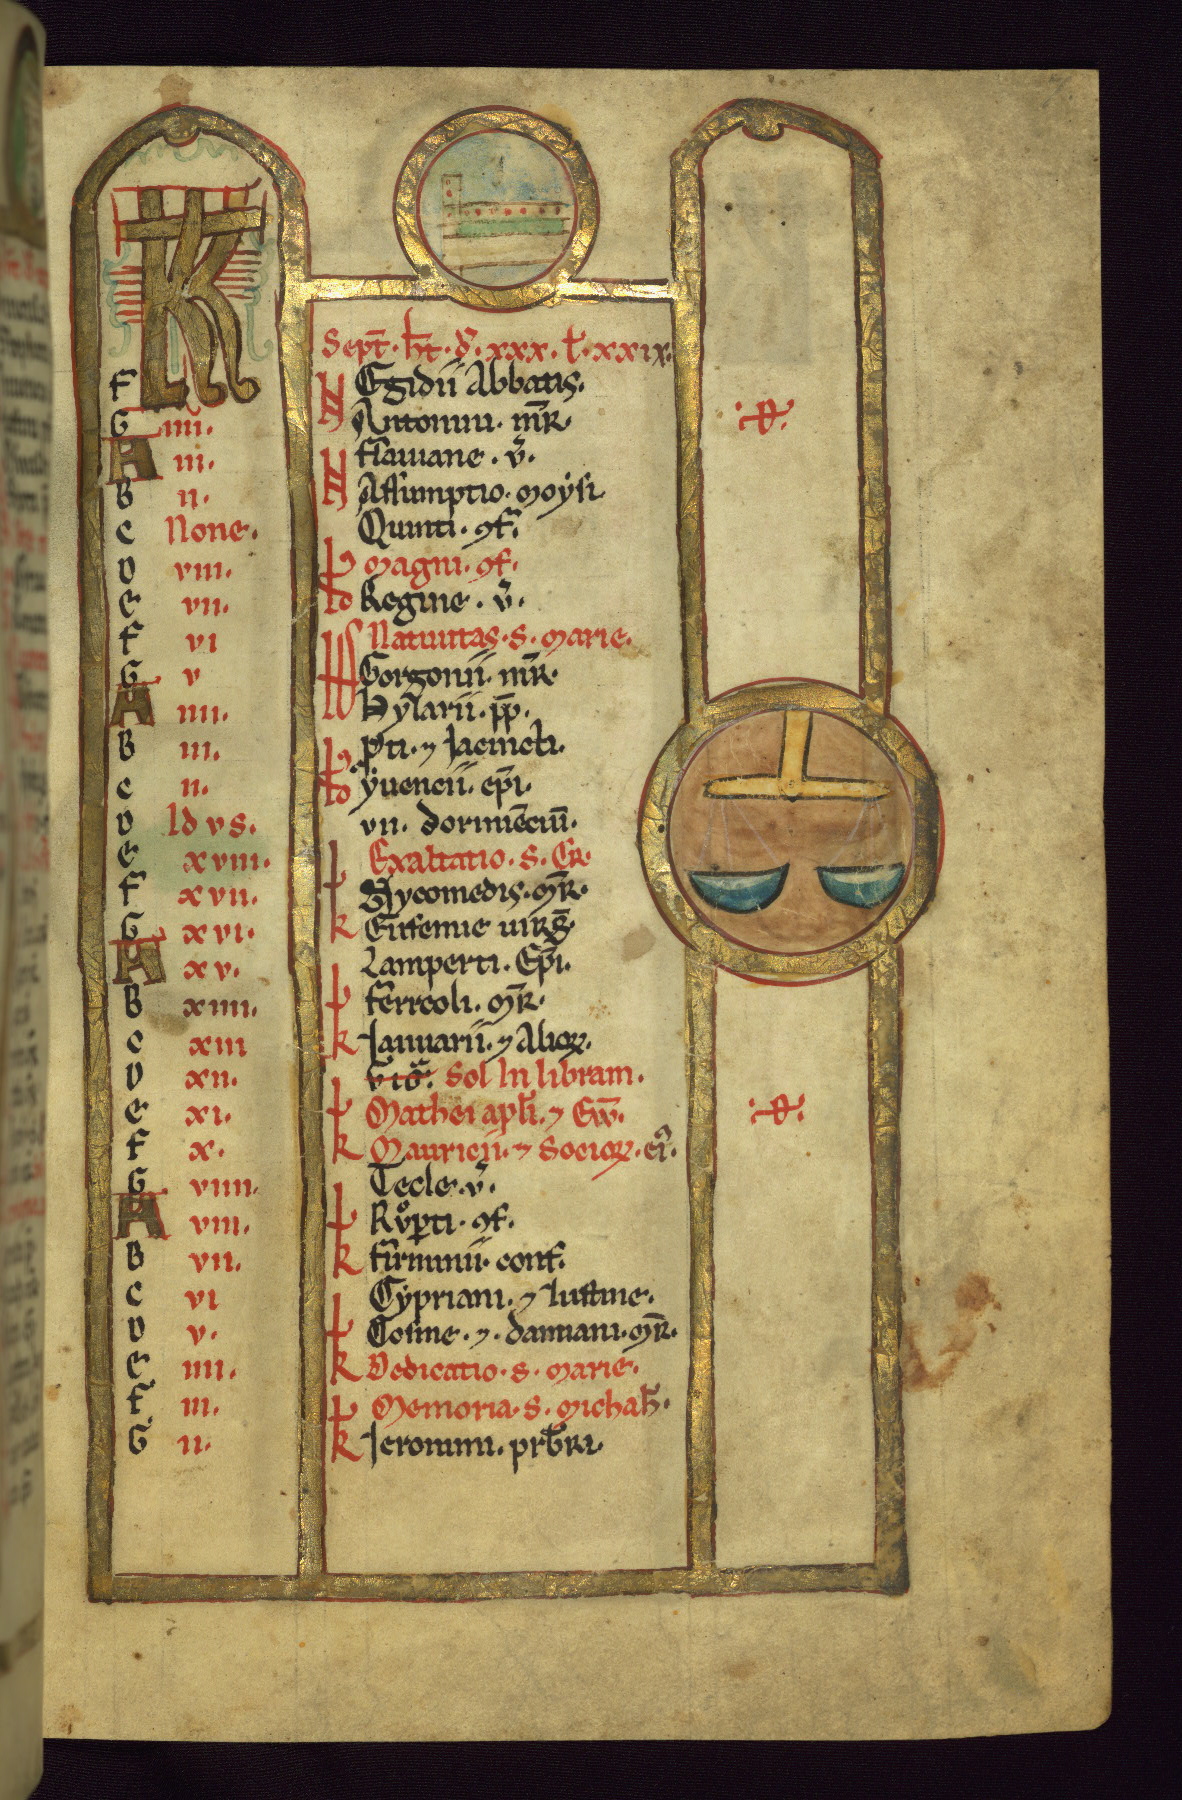 KL
Sept̄ · ħt · d̄ · xxx · ł · xxix ·
F Egidii Abbatis ·
G iiii · Antonini · m̄R ·
A iii · flauiane · v̄ ·
B ii · Assumptio · Moẏsi
C None · Quinti · ꝯf ·
D viii · Magni · ꝯf ·
E vii · Regine · v̄ ·
F vi Natiuitas · S · Marie ·
G v Gorgonii · m̄R ·
A iiii · Hẏlarii · pp̄ ·
B iii · Pti · ⁊ Jacincti ·
C ii · ẏuencii · ep̄i ·
D Idvs · vii · dormiēciū ·
E xviii · Exaltatio · S · CR ·
F xvii · Nycomedis · M̄R ·
G xvi · Eufemie uirḡ ·
A xv · Lamperti · Ep̄i ·
B xiiii · ferreoli · M̄R ·
C xiii Januarii · ⁊ Alioꝝ ·
D xii · Vigᵃ · Sol In libram ·
E xi · Mathei apłi · ⁊ Ew̄ ·
F x · Mauricii · ⁊ Socioꝝ · ei⁹ ·
G viiii · Tecle · v̄ ·
A viii · Ruͦꝑti · ꝯf ·
B vii · firminii · conf ·
C vi Cẏpriani · ⁊ Iustine ·
D v · Cosme · ⁊ · damiani · M̄R ·
E iiii · Dedicatio · S · Marie ·
F iii · Memoria · S · Michaħ ·
G ii · Jeronimi · prb̄Ri ·